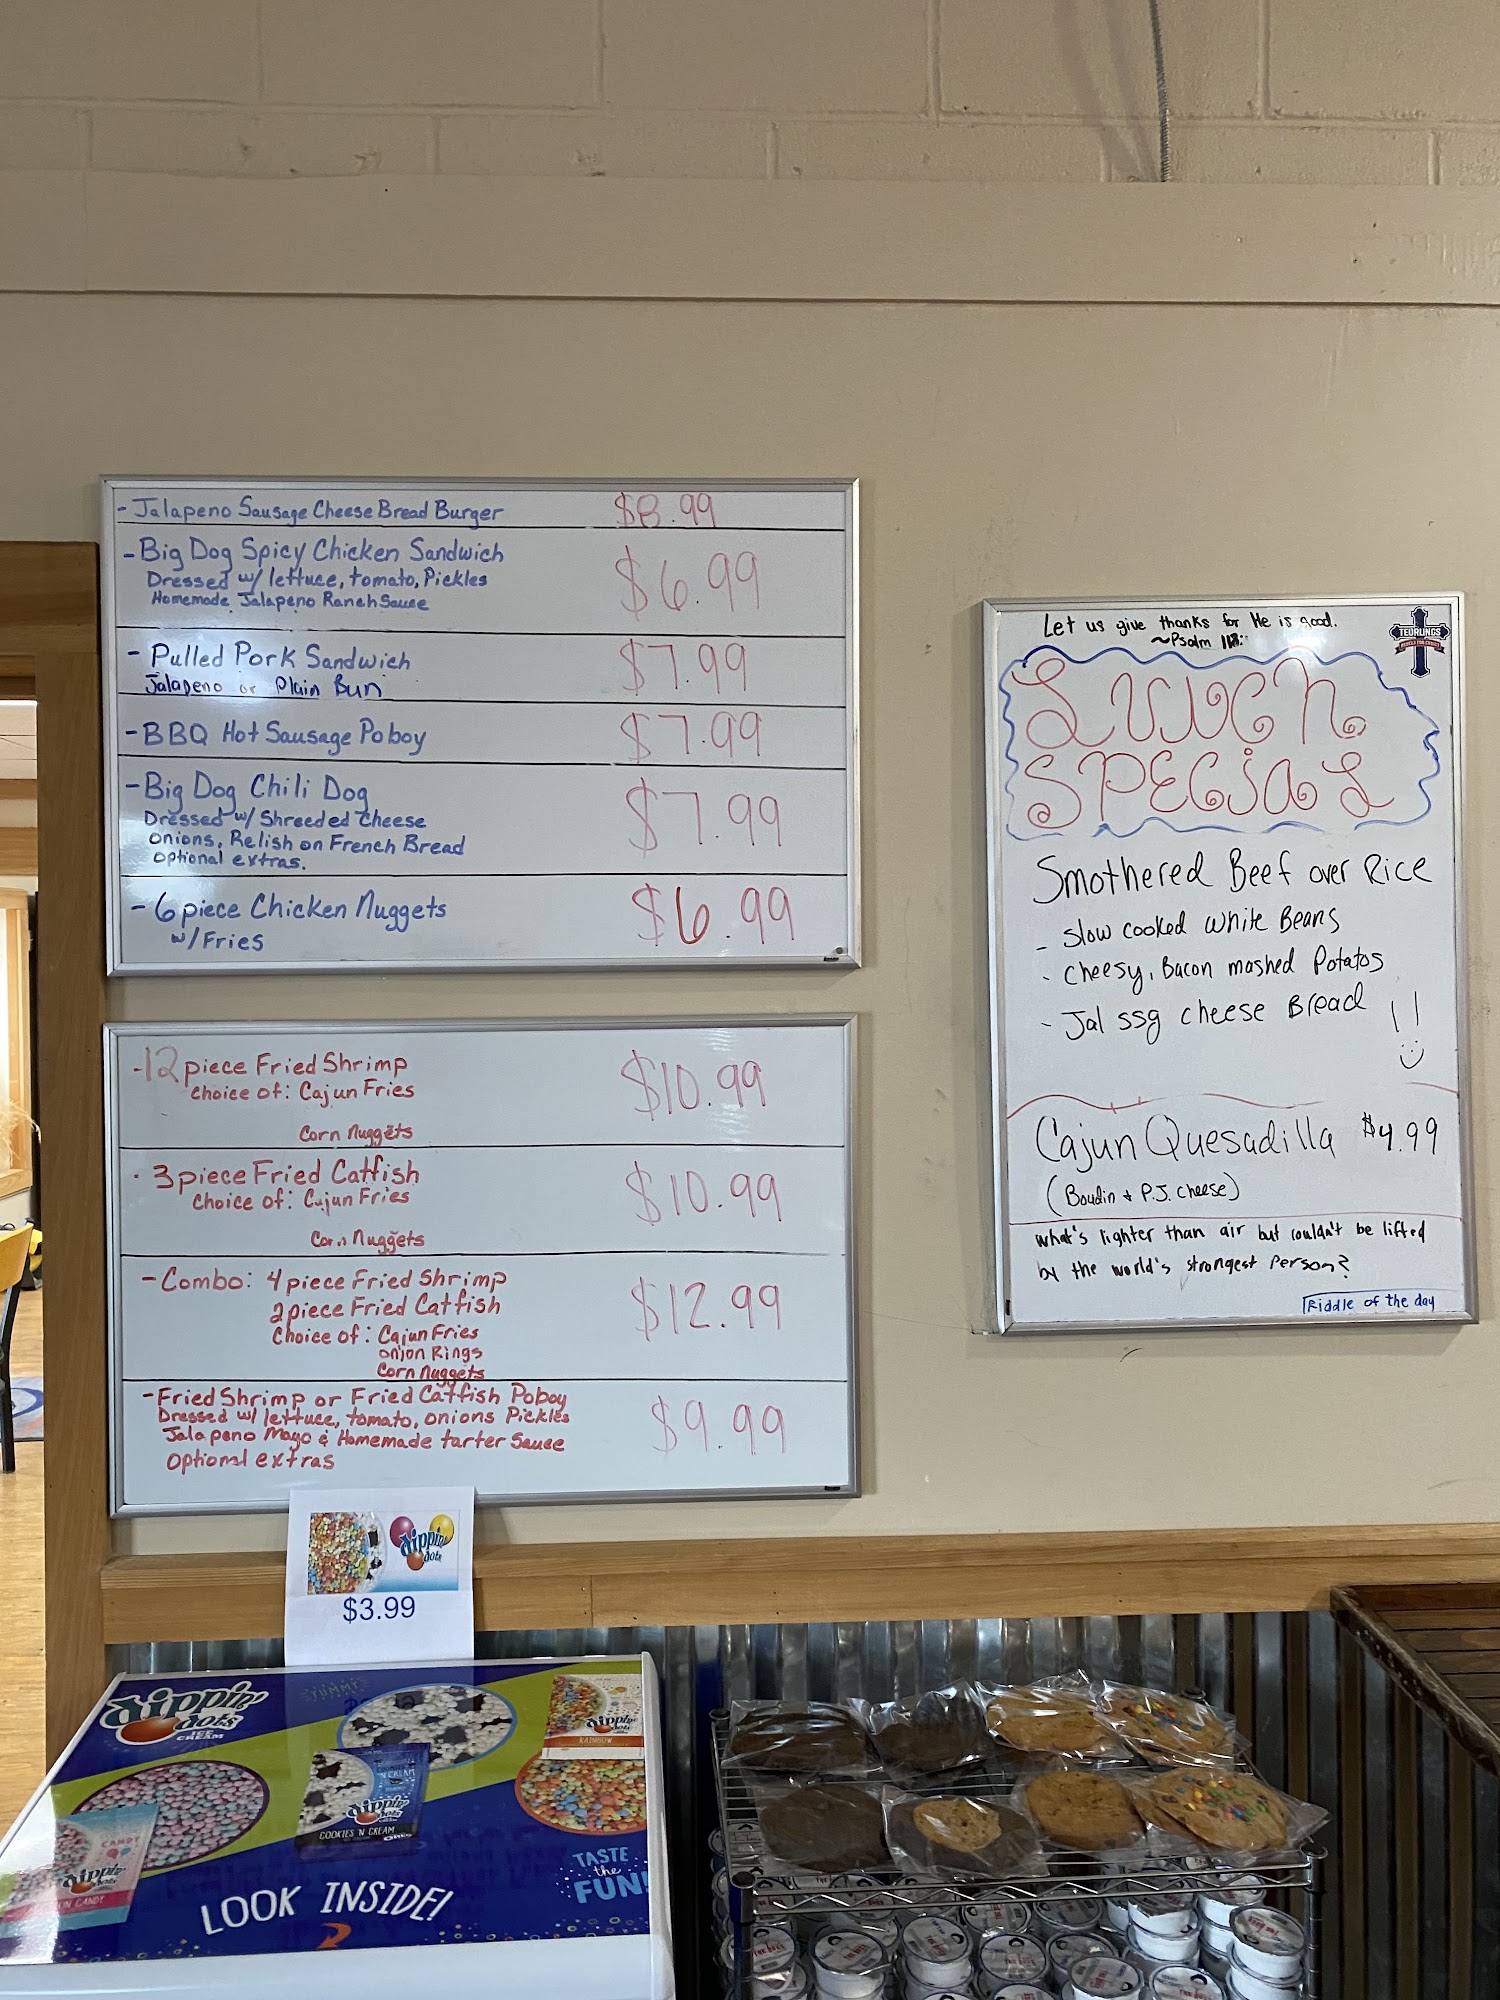 - Jalapeno Sausage Cheese Bread Burger $8.99
- Big Dog Spicy Chicken Sandwich $6.99
Dressed w/ lettuce, tomato, Pickles
Homemade Jalapeno Ranch Sauce
- Pulled Pork Sandwich $7.99
Jalapeno or Plain Bun
- BBQ Hot Sausage Poboy $7.99
- Big Dog Chili Dog $7.99
Dressed w/ Shreeded Cheese
onions, Relish on French Bread
optional extras.
- 6 piece Chicken Nuggets $6.99
w/Fries
- 12 piece Fried Shrimp $10.99
Choice of: Cajun Fries
Corn Nuggets
- 3 piece Fried Catfish $10.99
Choice of: Cajun Fries
Corn Nuggets
- Combo: 4 piece Fried Shrimp $12.99
2 piece Fried Catfish
Choice of: Cajun Fries
onion Rings
Corn Nuggets
- Fried Shrimp or Fried Catfish Poboy $9.99
Dressed w/ lettuce, tomato, onions Pickles
Jalapeno Mayo & Homemade tarter Sauce
optional extras
Let us give thanks for He is good.
~Psalm
TEURLINGS
Lunch
Special
Smothered Beef over Rice
- Slow cooked white Beans
- Cheesy, Bacon mashed Potatos
- Jal ssg cheese Bread !!
Cajun Quesadilla $4.99
(Boudin & P.J. cheese)
what's lighter than air but couldn't be lifted
by the world's strongest Person?
Riddle of the day
dippin' dots
$3.99
dippin' dots
ICE CREAM
YUMMY
dippin' dots
RAINBOW
dippin' dots
COOKIES 'N CREAM
dippin' dots
CANDY
TASTE
the
FUN!
LOOK INSIDE!